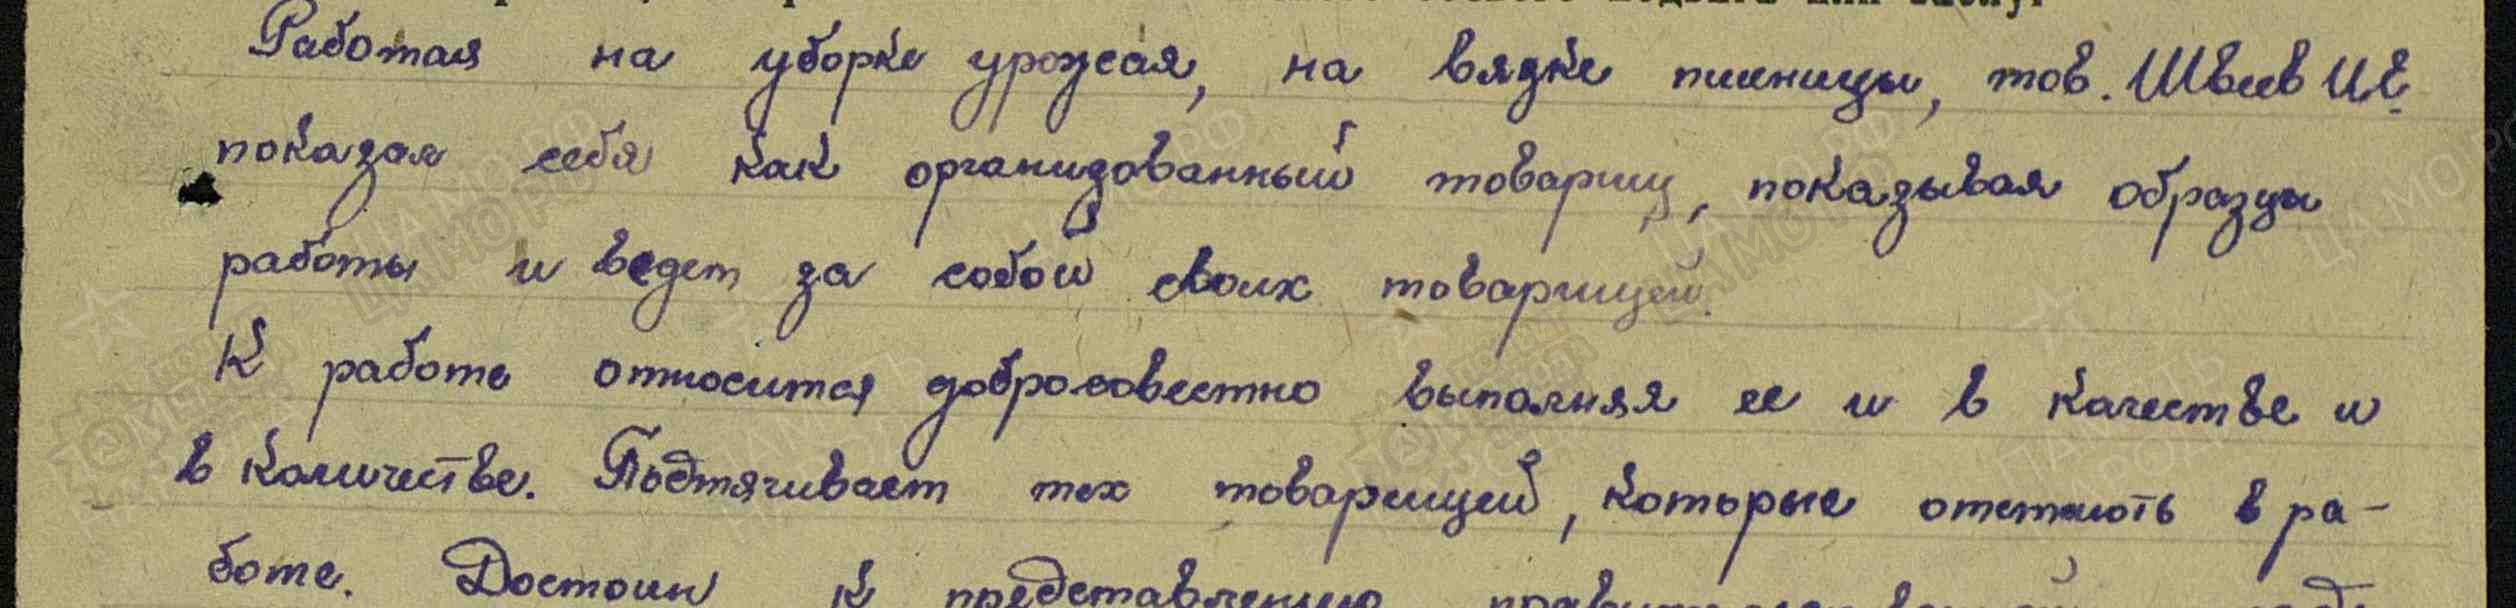 Работая на уборке урожая, на вязке пшеницы, тов. Швеев И.Е.
показал себя как организованный товарищ, показывая образцы
работы и ведет за собой своих товарищей.
К работе относится добросовестно выполняя ее и в качестве и
в количестве. Подтягивает тех товарищей, которые отстають в ра-
боте. Достоин к представлению